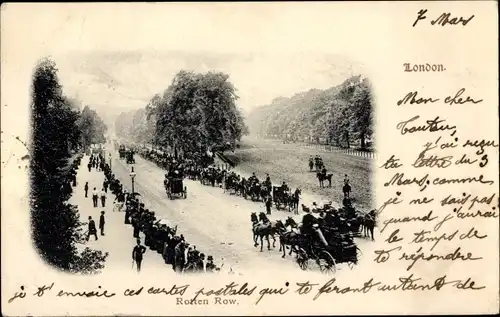 7 Mars
London.
Mon cher
Tantan, j'ai reçu
ta lettre du 3
Mars, comme
je ne sais pas
quand j'aurai
le temps de
répondre
je t'envoie ces cartes postales qui te feront autant de
Rotten Row.